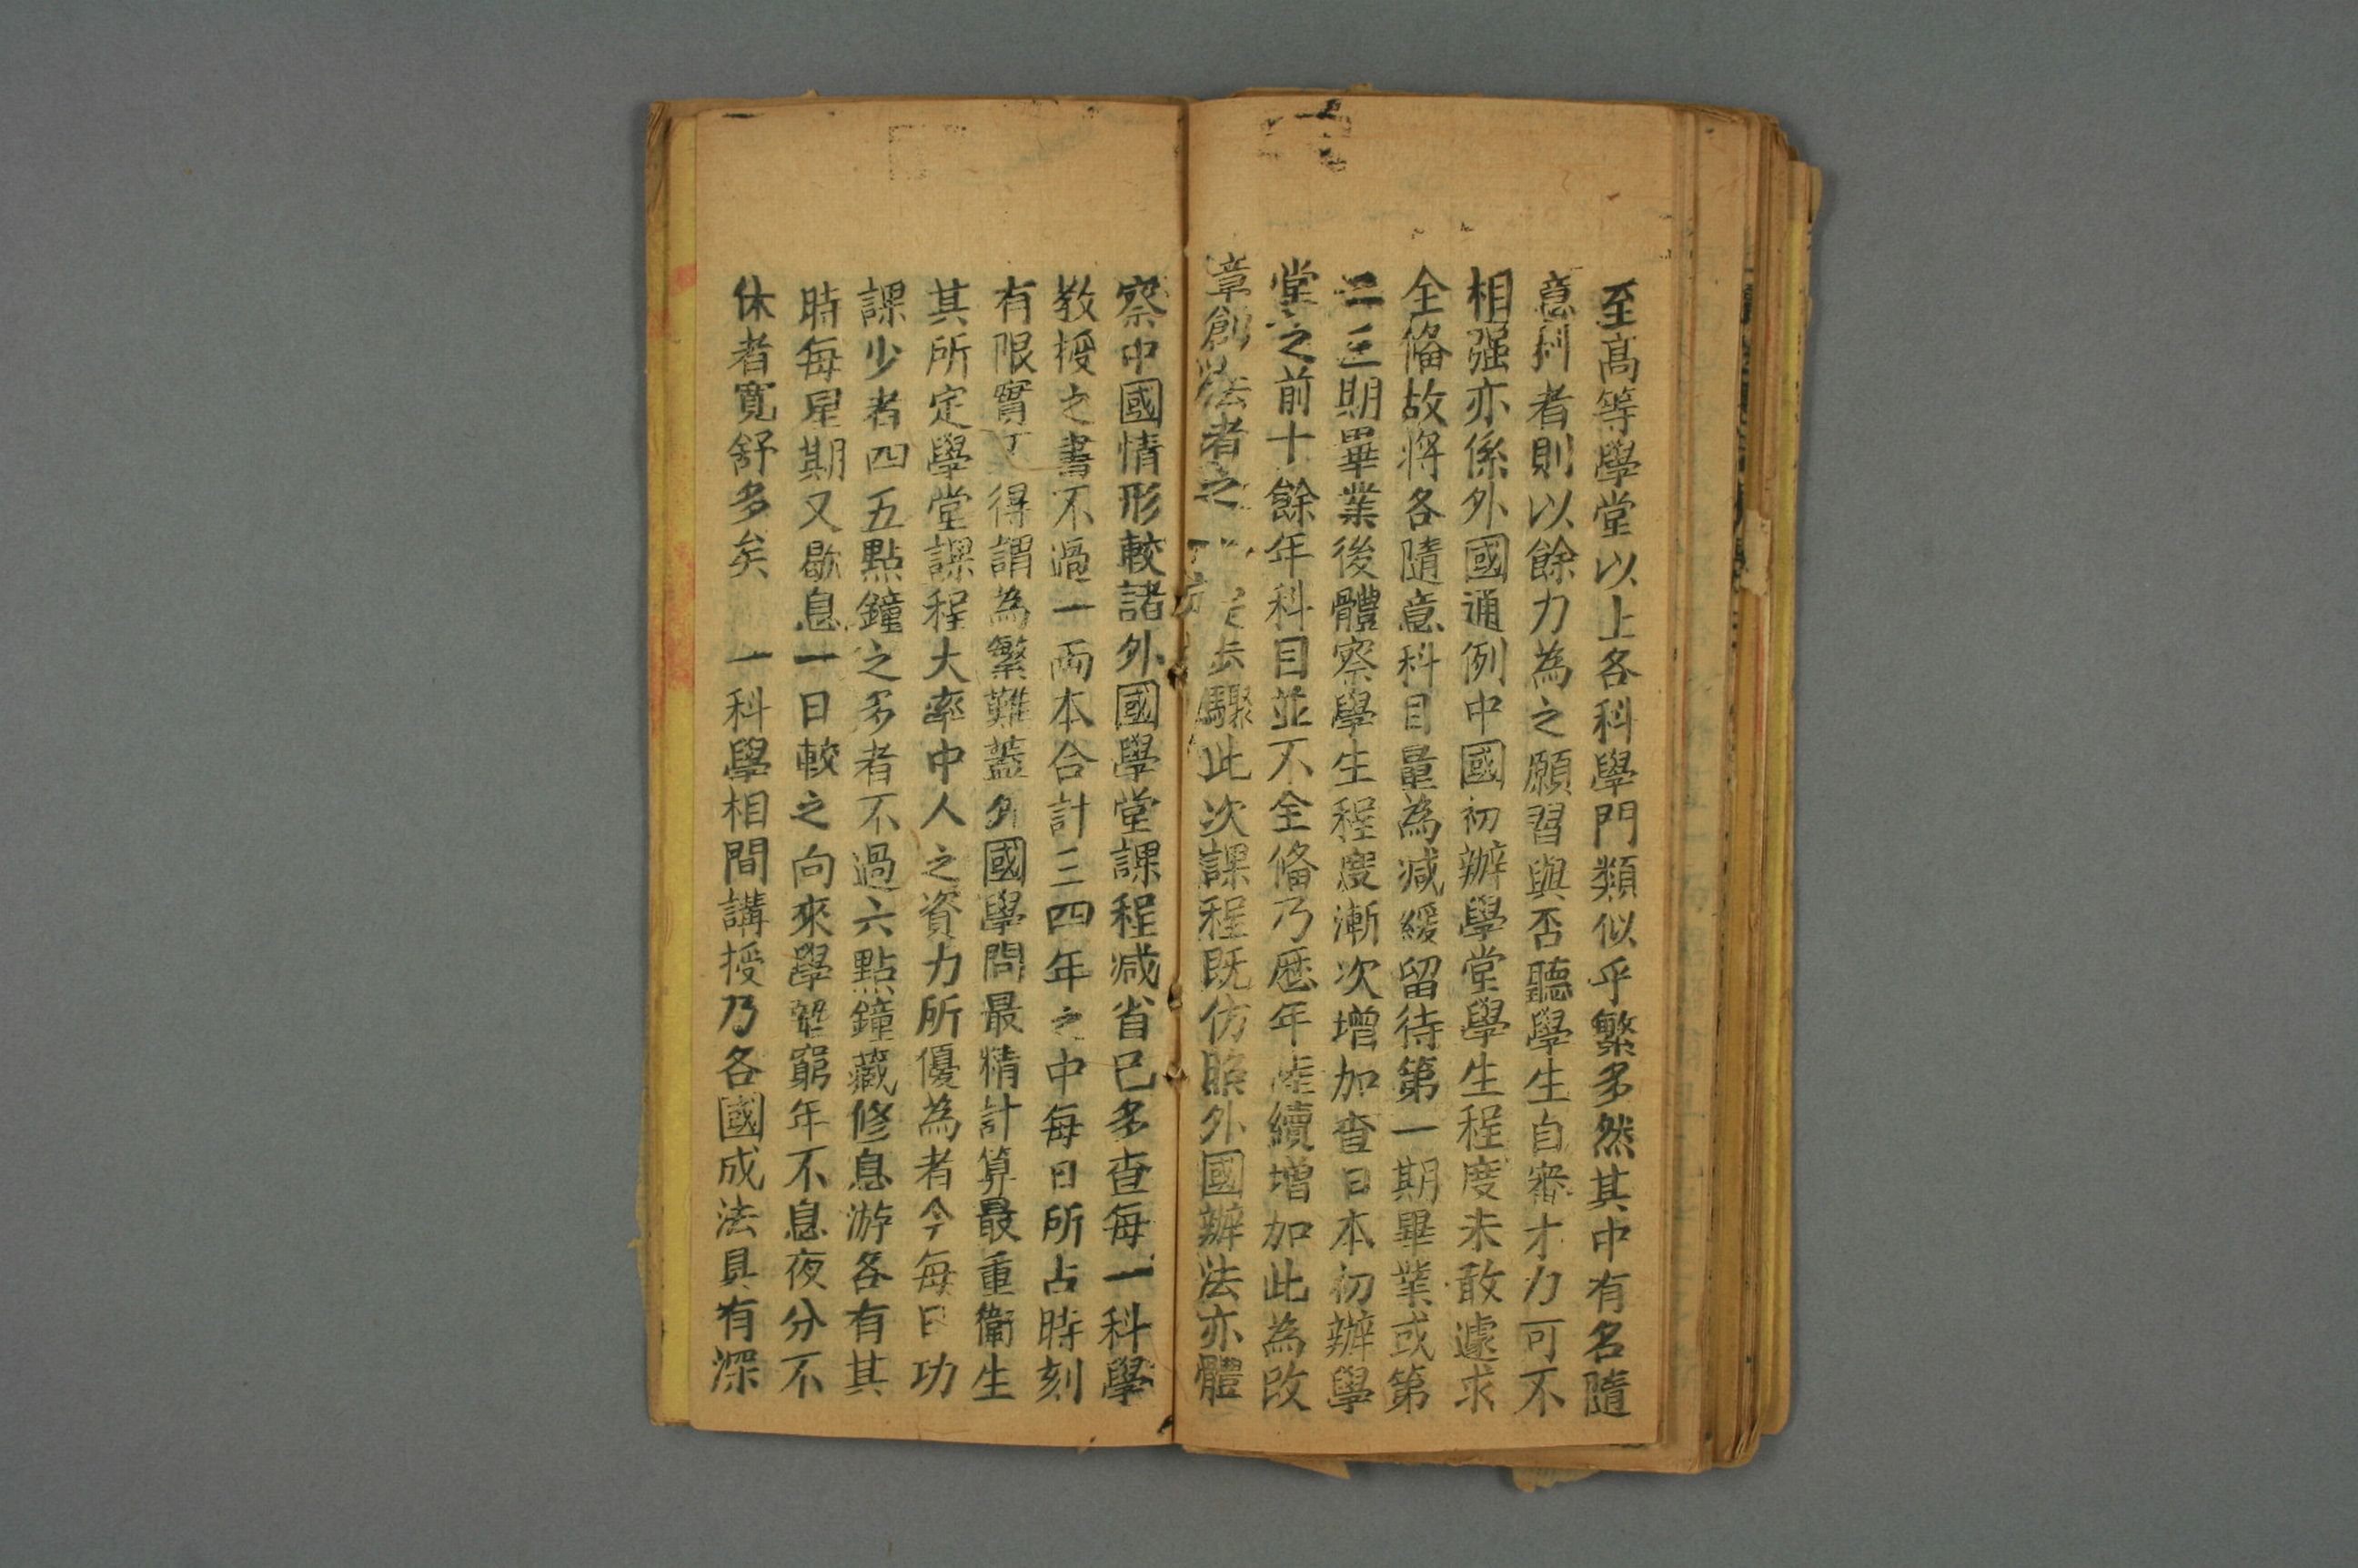 至高等學堂以上各科學門類似乎繁多然其中有名隨
意科者則以餘力為之願習與否聽學生自審才力可不
相强亦係外國通例中國初辦學堂學生程度未敢遽求
全俻故将各隨意科目量為减緩留待第一期畢業或第
二三期畢業後體察學生程度漸次增加查日本初辦學
堂之前十餘年科目並不全俻乃歷年陸續增加此為改
章創法者之步驟此次課程既仿照外國辦法亦體
察中國情形較諸外國學堂課程减省已多查每一科學
教授之書不過一兩本合計三四年之中每日所占時刻
有限實不得謂為繁難蓋外國學問最精計算最重衞生
其所定學堂課程大率中人之資力所優為者今每日功
課少者四五點鐘之多者不過六點鐘藏修息游各有其
時每星期又歇息一日較之向來學塾窮年不息夜分不
休者寛舒多矣 一科學相間講授乃各國成法具有深